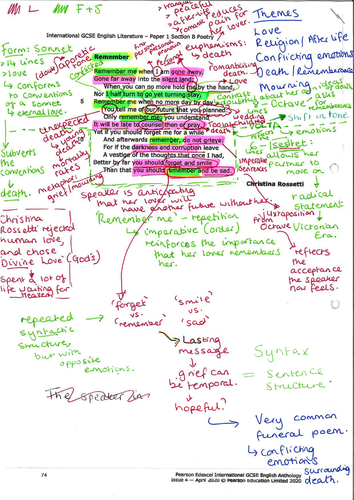 M L F + S
tranquil
peaceful
afterlife
reduces
romantic pain for
her lover.
Themes
Love
Religion/After life
Conflicting emotions
Death/Remembrance
Mourning
International GCSE English Literature – Paper 1 Section B Poetry
euphemisms:
death
Form: Sonnet
14 lines
love
conforms
to conventions
of a sonnet
eternal love
Subverts
the
conventions
death.
Remember
Remember me when I am gone away,
Gone far away into the silent land;
When you can no more hold me by the hand,
Nor I half turn to go yet turning stay.
Remember me when no more day by day
You tell me of our future that you planned:
Only remember me; you understand
It will be late to counsel then or pray.
Yet if you should forget me for a while
And afterwards remember, do not grieve:
For if the darkness and corruption leave
A vestige of the thoughts that once I had,
Better by far you should forget and smile
Than that you should remember and be sad.
Christina Rossetti
romanticising
death.
Love
Octave
shift in tone
Sestet:
allows her
partner to
move on
imperative
Unexpected
death
young
mortality
rates
metaphor:
grief/mourning
Speaker is anticipating
that her lover will
have another future without her.
'Remember me' – repetition
imperative (order)
reinforces the importance
that her lover remembers
her.
Juxtaposition
from
Octave
radical
statement
Victorian
Era.
reflects
the
acceptance
the speaker
now feels.
Christina
Rossetti rejected
human love,
and chose
Divine Love (God's)
Spent a lot of
life waiting for
Heaven
repeated
syntactic
structure,
but with
opposite
emotions.
'forget'
vs.
'remember'
'smile'
vs.
'sad'
Lasting
message
grief can
be temporal.
hopeful?
Syntax
= Sentence
structure.
The speaker in
Very common
funeral poem.
conflicting
emotions
surrounding
death.
74
Pearson Edexcel International GCSE English Anthology
Issue 4 – April 2020 © Pearson Education Limited 2020